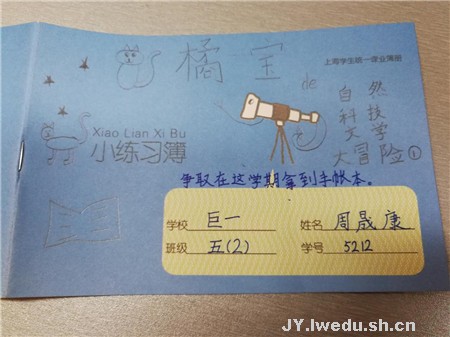 上海学生统一课业簿册
橘一宝
de
自然
科技
文学
大冒险①
Xiao Lian Xi Bu
小练习簿
争取在这学期拿到手帐本。
学校 巨一 姓名 周晟康
班级 五(2) 学号 5212
JY.lwedu.sh.cn